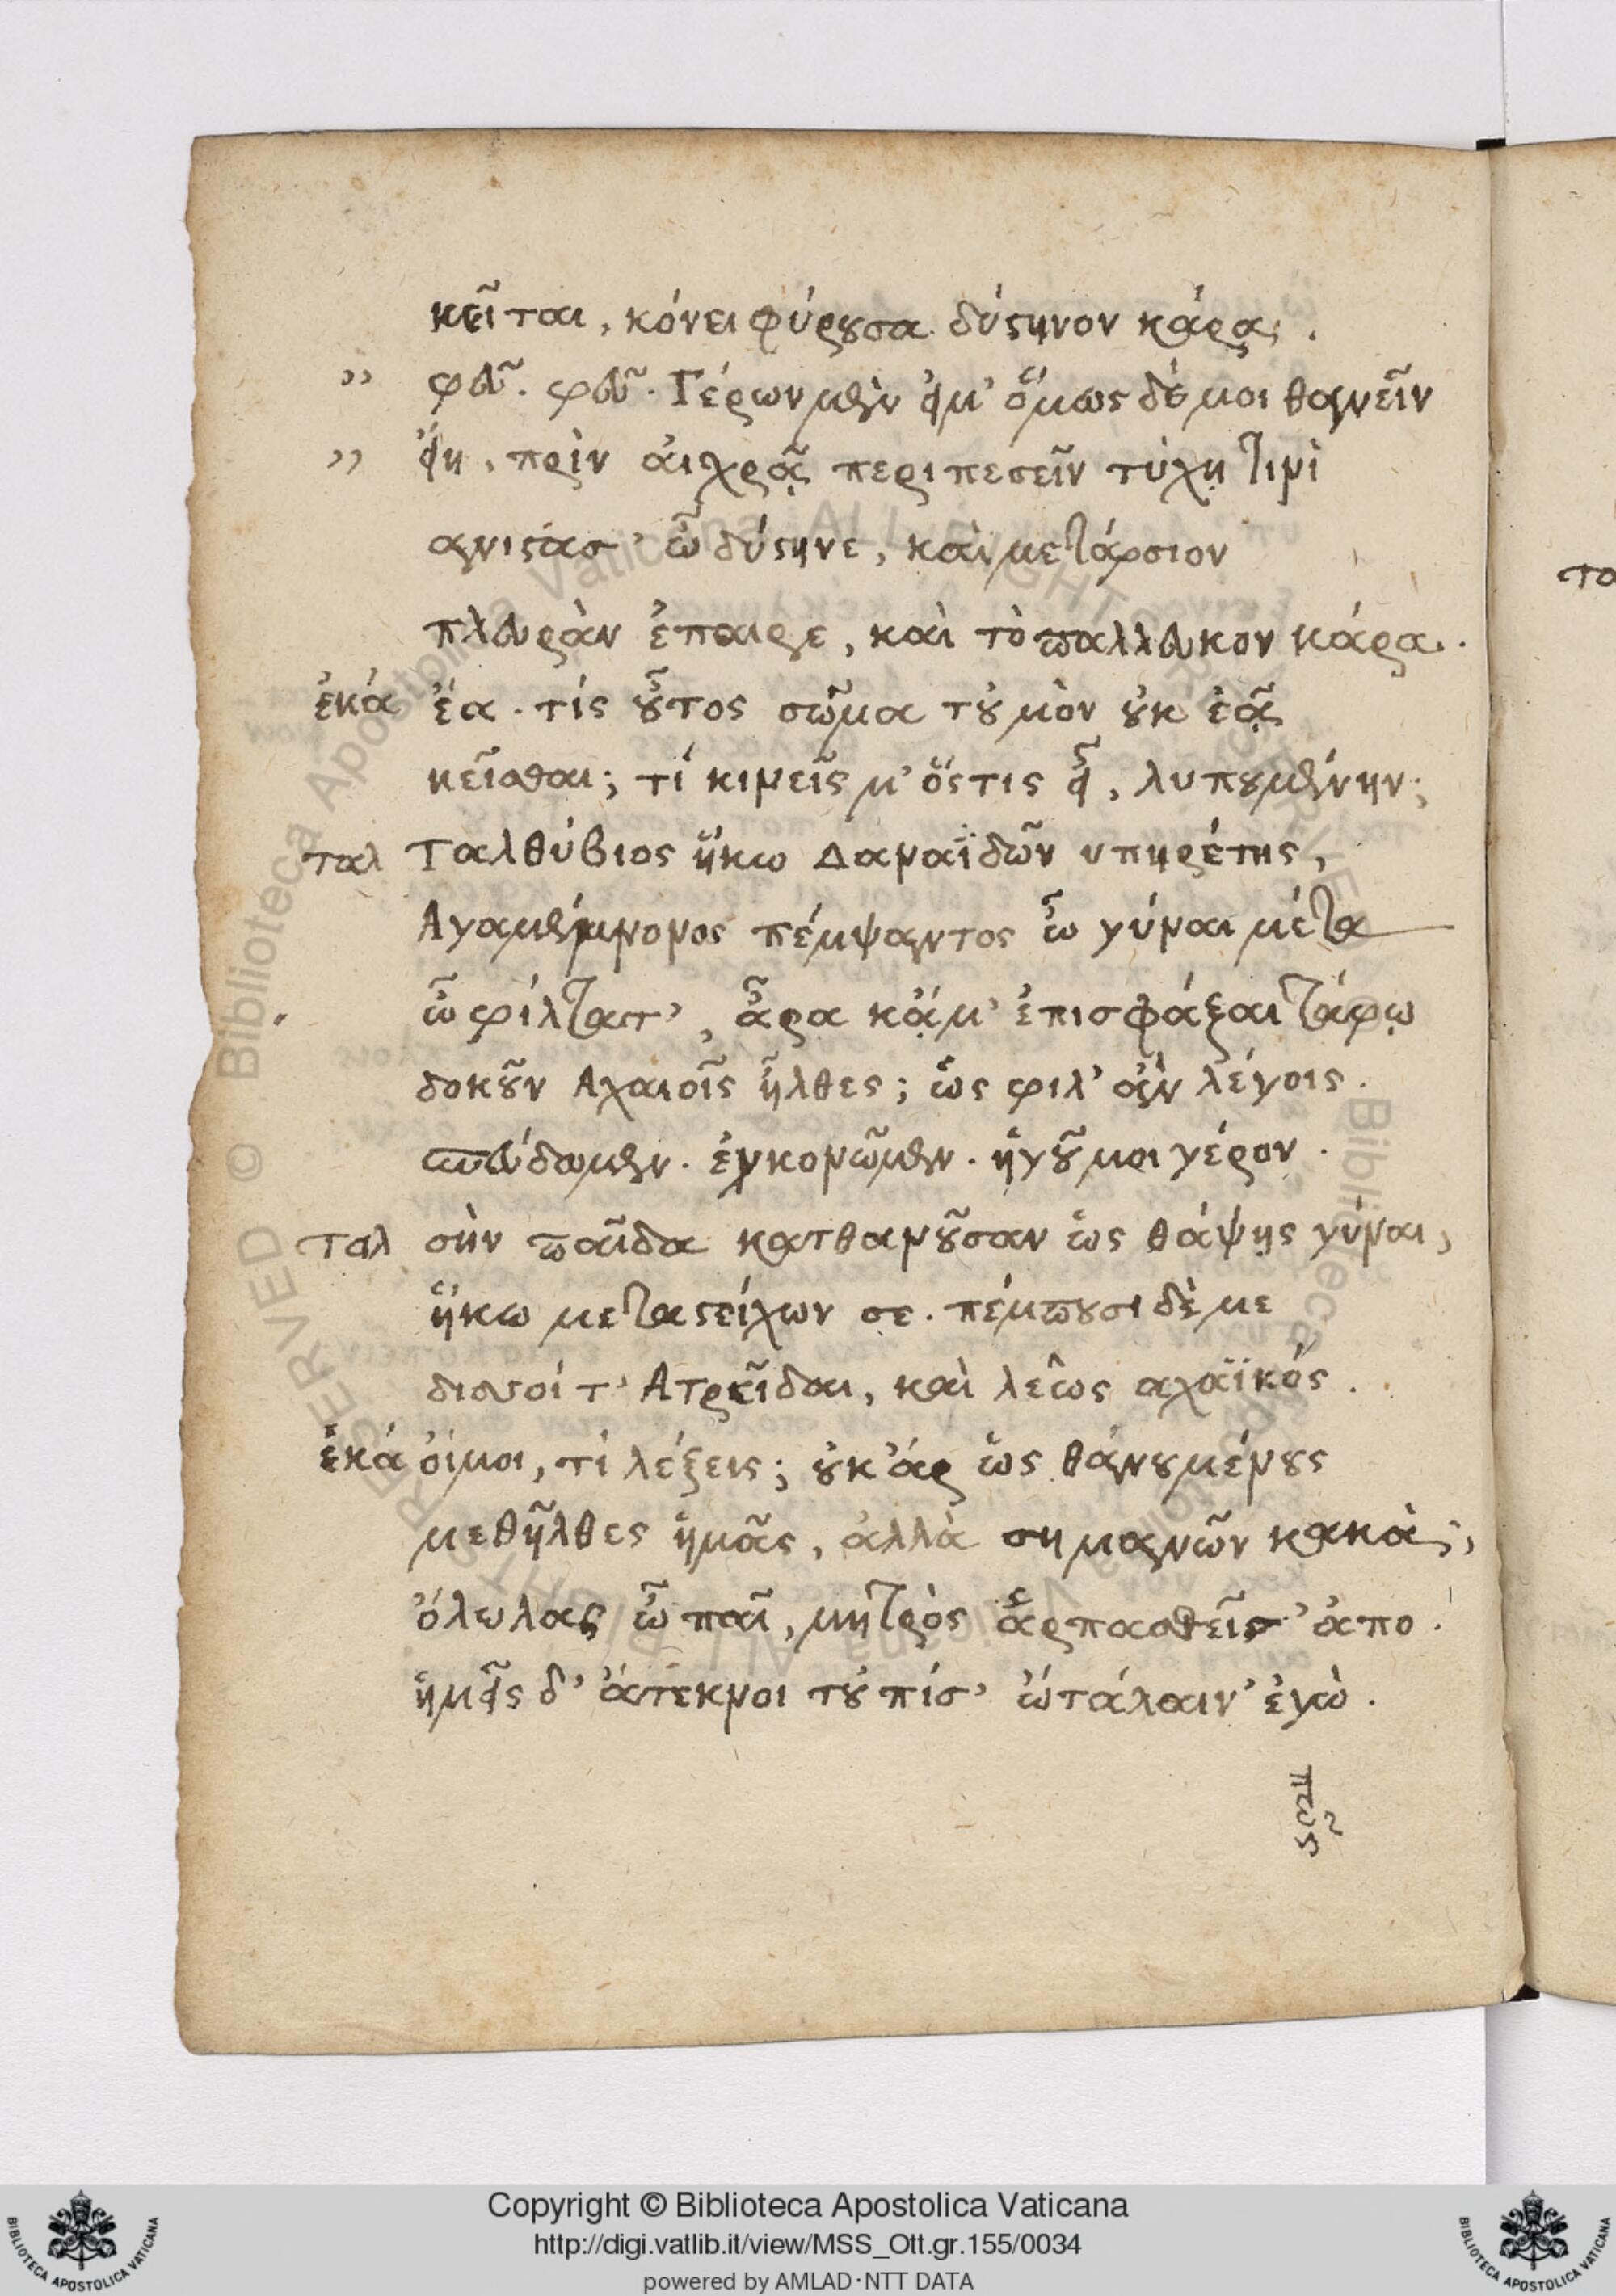 κεῖται, κόνει φύρουσα δύστηνον κάρα.
” φεῦ. φεῦ. Γέρων μὲν εἰμ’ ὅμως δέ μοι θανεῖν
” εἴη, πρὶν αἰχρᾷ περιπεσεῖν τύχῃ τινὶ
ανιστάσ’ ὦ δύστηνε, καὶ μετάρσιον
πλευρὰν ἔπαιρε, καὶ τὸ πάλλευκον κάρα.
ἑκά ἔα. τίς οὗτος σῶμα τοὐμὸν οὐκ ἐᾷ
κεῖσθαι; τί κινεῖς μ’ ὅστις εἶ, λυπουμένην;
ταλ Ταλθύβιος ἥκω Δαναϊδῶν υπηρέτης,
Αγαμέμνονος πέμψαντος ὦ γύναι μέτα
ὦ φίλτατ’, ἆρα κᾄμ’ ἐπισφάξαι τάφῳ
δοκοῦν Αχαιοῖς ἦλθες; ὡς φιλ’ ἀν λέγοις.
σπεύδωμεν. ἐγκονῶμεν. ἡγοῦ μοι γέρον.
ταλ σὴν παῖδα κατθανοῦσαν ὡς θάψῃς γύναι,
ἥκω μεταστείχων σε. πέμπουσι δὲ με
δισσοί τ’ Ατρεῖδαι, καὶ λεὼς αχαϊκός.
ἑκά οἴμοι, τί λέξεις; οὐκ ἄρ ὡς θανουμένους
μεθῆλθες ἡμᾶς, ἀλλὰ σημανῶν κακά;
ὄλωλας ὦ παῖ, μητρὸς ἁρπασθεῖσ’ ἀπο.
ἡμεῖς δ’ ἄτεκνοι τοὐπίσ’ ὠ τάλαιν’ ἐγὼ.
πῶς
τα
Copyright © Biblioteca Apostolica Vaticana
http://digi.vatlib.it/view/MSS_Ott.gr.155/0034
powered by AMLAD·NTT DATA
BIBLIOTECA APOSTOLICA VATICANA
BIBLIOTECA APOSTOLICA VATICANA